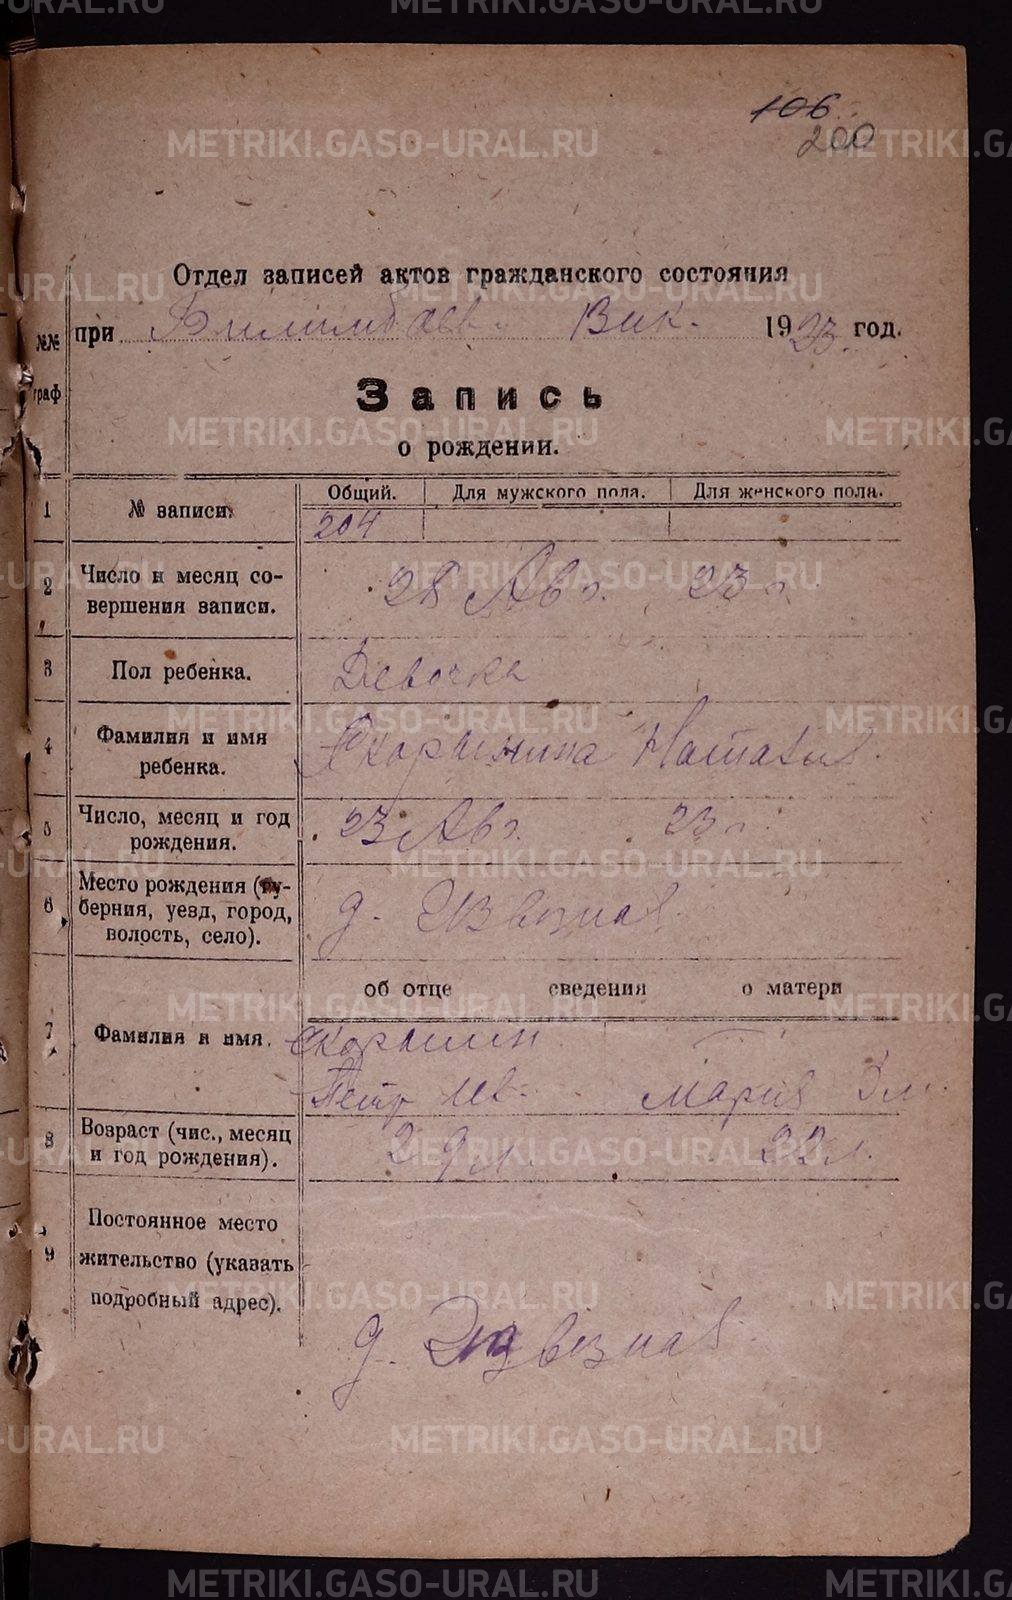 106
200
Отдел записей актов гражданского состояния
при Билимбаев. Вик. 1923 год.
№№ граф
Запись
о рождении.
Общий. Для мужского пола. Для женского пола.
1 № записи. 204
2 Число и месяц со-
вершения записи. 28 Авг. 23 г.
3 Пол ребенка. Девочка
4 Фамилия и имя
ребенка. Скорынина Наталия.
5 Число, месяц и год
рождения. 23 Авг. 23 г.
6 Место рождения (гу-
берния, уезд, город,
волость, село). д.
об отце сведения о матери
7 Фамилия и имя. Скорынин
Петр Ив. Мария
8 Возраст (чис., месяц
и год рождения). 29 л. 22 л.
9 Постоянное место
жительство (указать
подробный адрес).
д.
METRIKI.GASO-URAL.RU